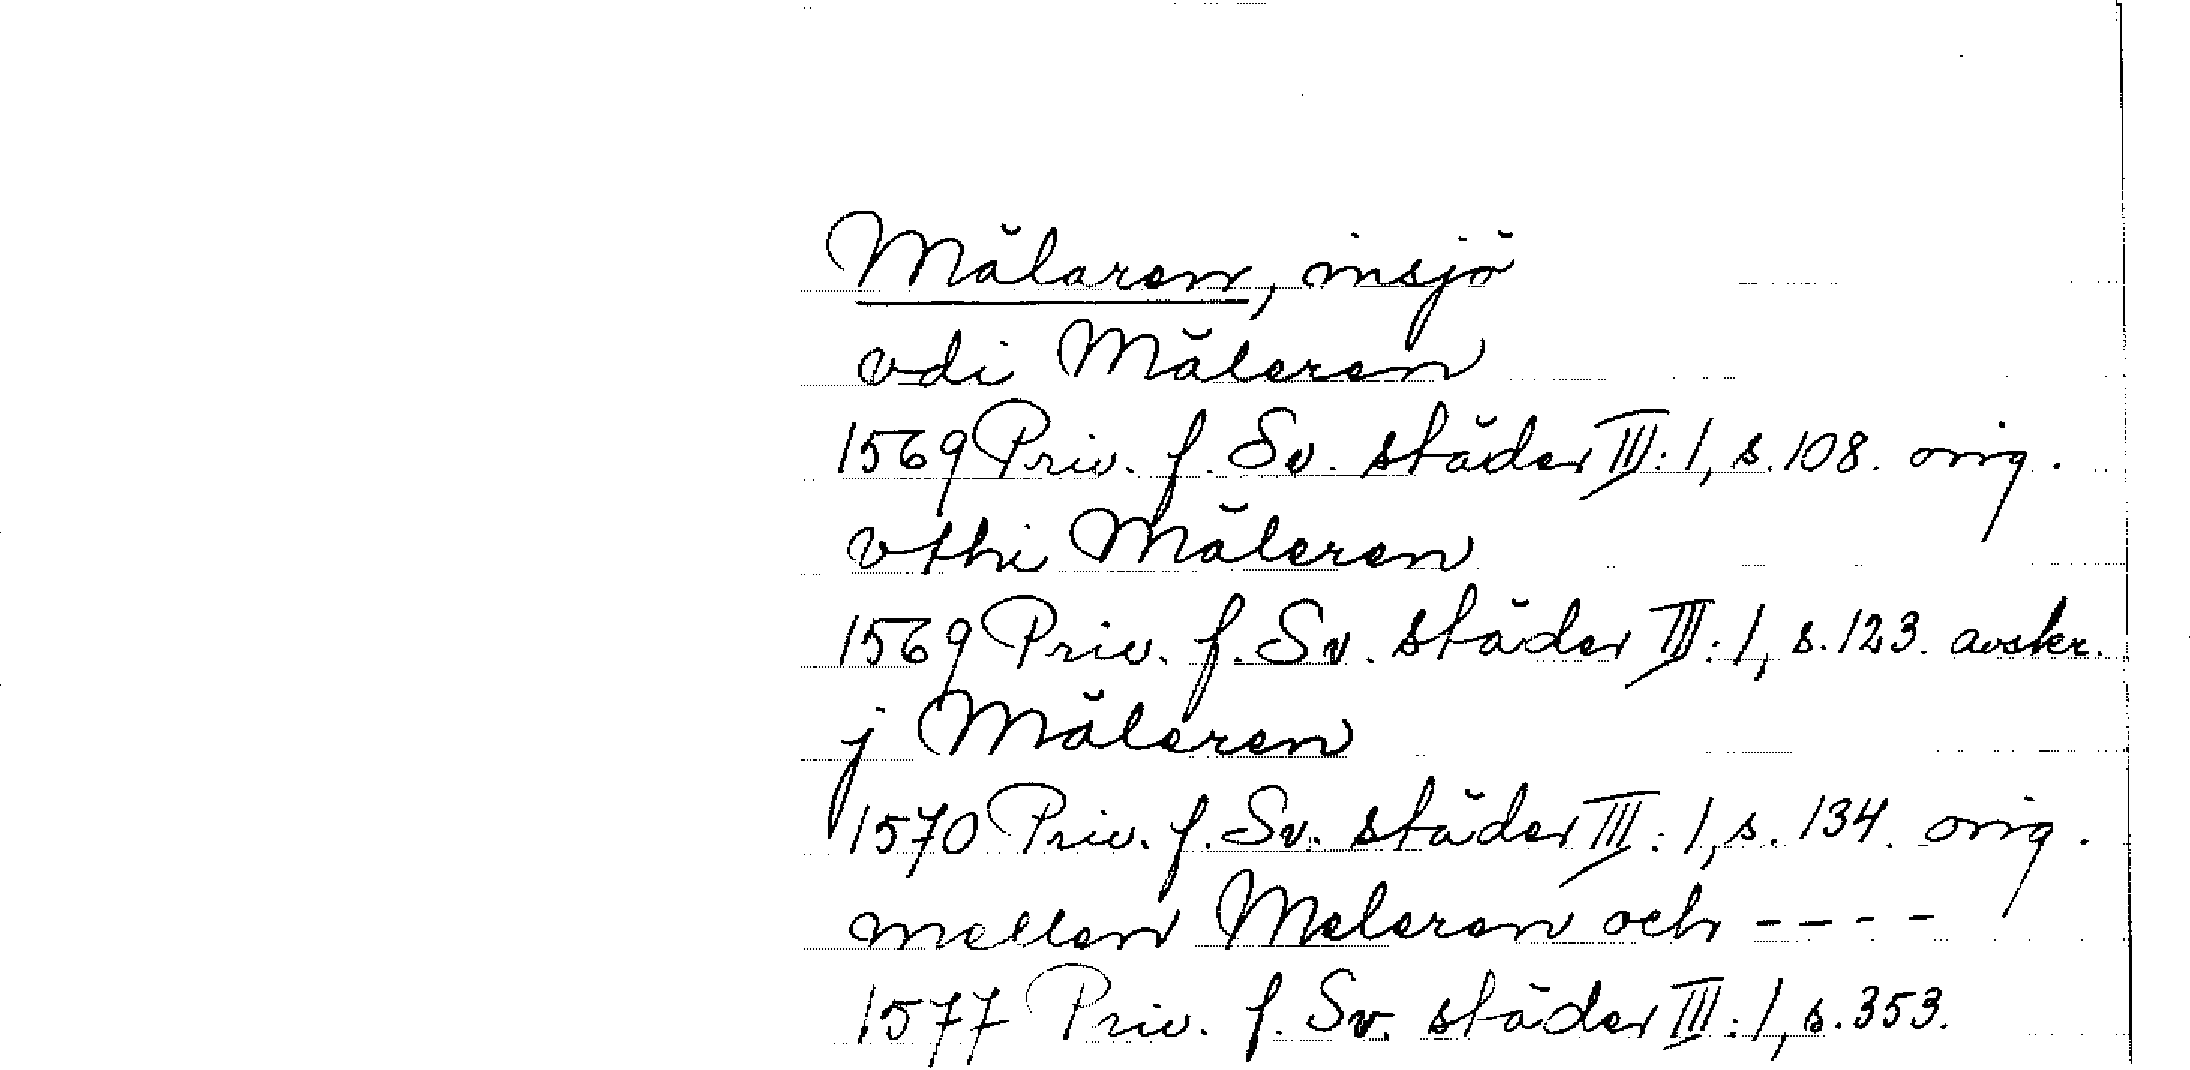 Mälaren, insjö
vdi Mäleren
1569 Priv. f. Sv. städer III:1, s. 108. orig.
vthi Mäleren
1569 Priv. f. Sv. städer III:1, s. 123. avskr.
j Mäleren
1570 Priv. f. Sv. städer III:1, s. 134. orig.
mellen Meleren och ----
1577 Priv. f. Sv. städer III:1, s. 353.